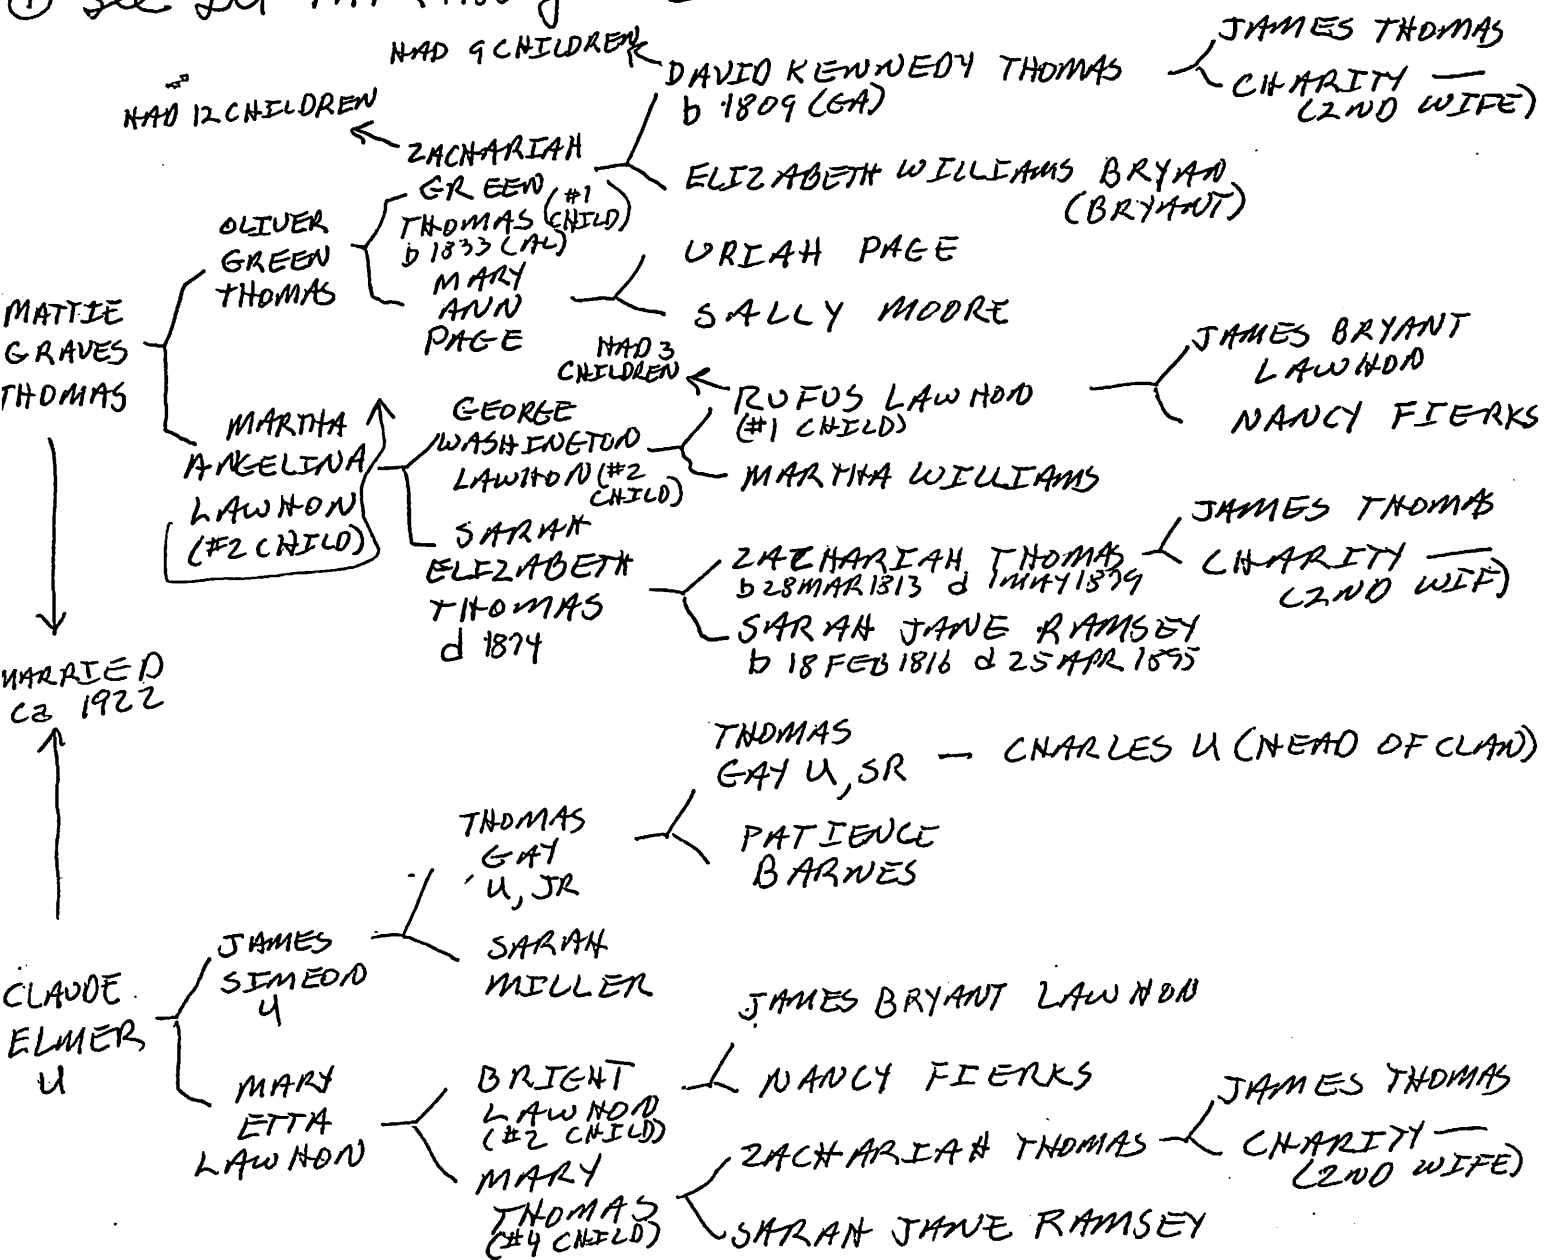 ① SEE
HAD 9 CHILDREN
HAD 12 CHILDREN
DAVID KENNEDY THOMAS
b 1809 (GA)
JAMES THOMAS
CHARITY —
(2ND WIFE)
ZACHARIAH
GREEN
THOMAS (#1
CHILD)
b 1833 (AL)
ELIZABETH WILLIAMS BRYAN
(BRYANT)
OLIVER
GREEN
THOMAS
MARY
ANN
PAGE
URIAH PAGE
SALLY MOORE
MATTIE
GRAVES
THOMAS
HAD 3
CHILDREN
RUFUS LAWHON
(#1 CHILD)
JAMES BRYANT
LAWHON
NANCY FIERKS
MARTHA
ANGELINA
LAWHON
(#2 CHILD)
GEORGE
WASHINGTON
LAWHON (#2
CHILD)
MARTHA WILLIAMS
SARAH
ELIZABETH
THOMAS
d 1874
ZACHARIAH THOMAS
b 28 MAR 1813 d 1 MAY 1879
JAMES THOMAS
CHARITY —
(2ND WIF)
SARAH JANE RAMSEY
b 18 FEB 1816 d 25 APR 1895
MARRIED
ca 1922
THOMAS
GAY U, SR — CHARLES U (HEAD OF CLAN)
THOMAS
GAY
U, JR
PATIENCE
BARNES
JAMES
SIMEON
U
SARAH
MILLER
CLAUDE
ELMER
U
MARY
ETTA
LAWHON
BRIGHT
LAWHON
(#2 CHILD)
JAMES BRYANT LAWHON
NANCY FIERKS
MARY
THOMAS
(#4 CHILD)
ZACHARIAH THOMAS
JAMES THOMAS
CHARITY —
(2ND WIFE)
SARAH JANE RAMSEY